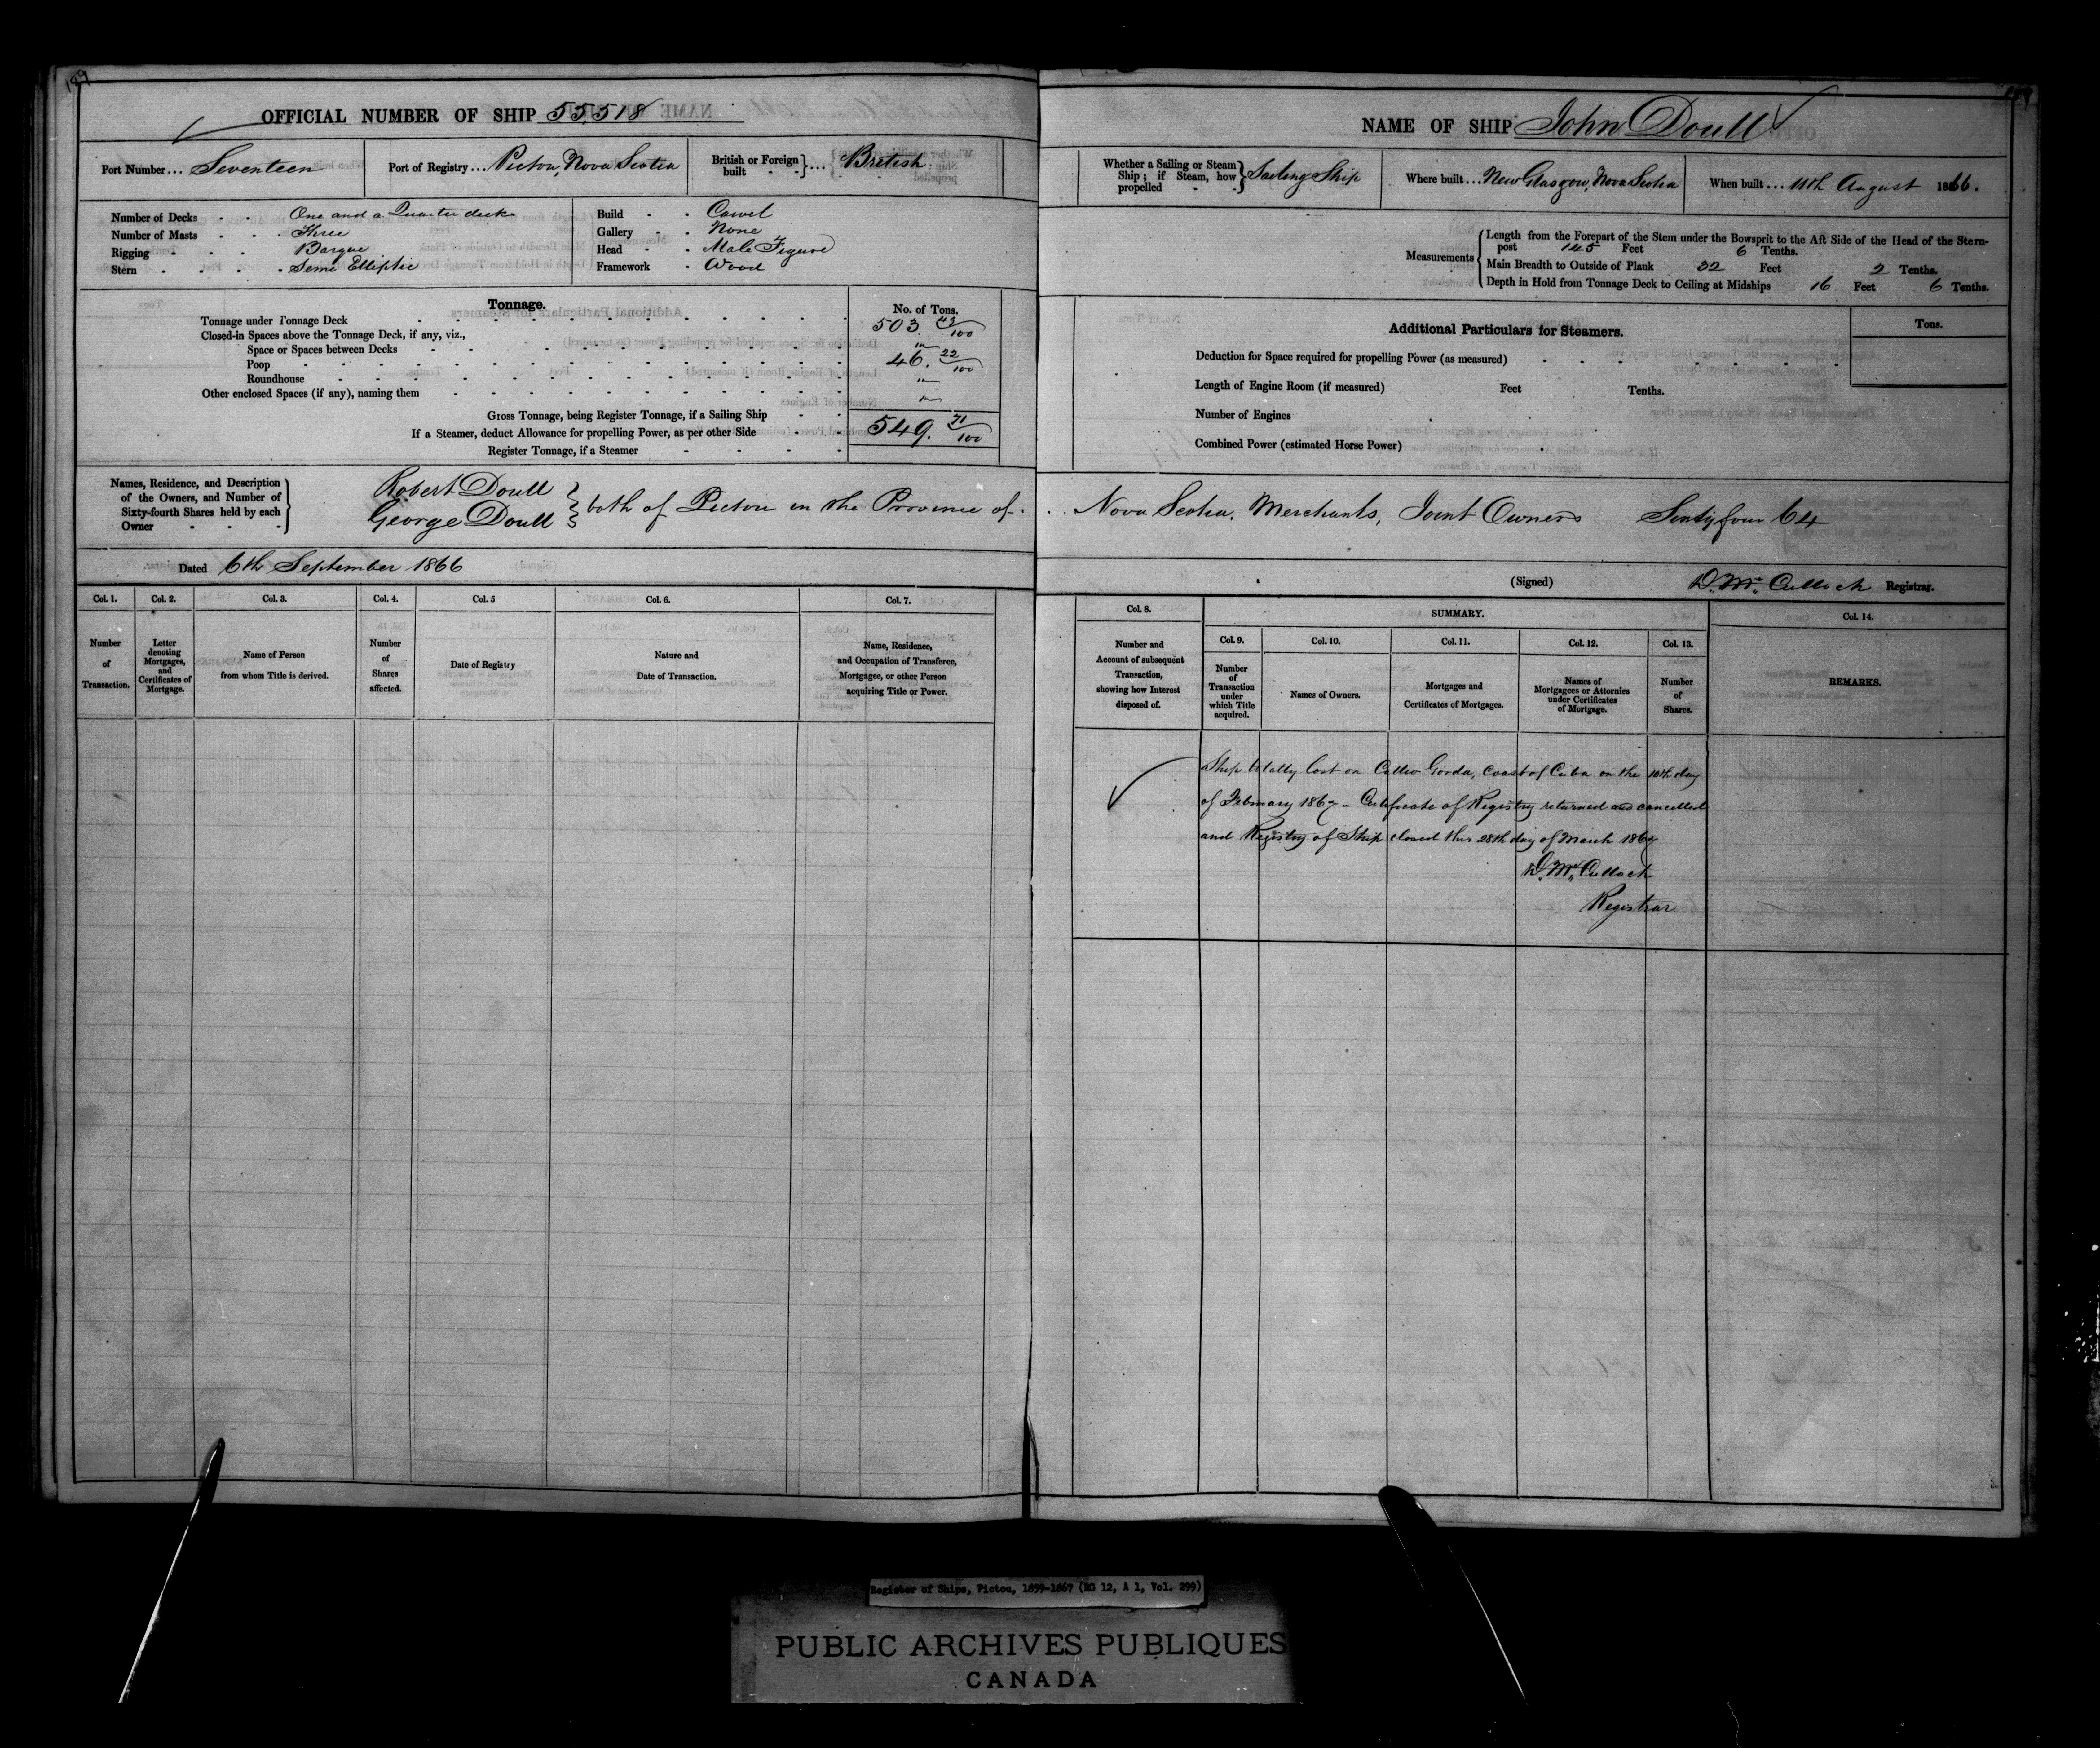 189
OFFICIAL NUMBER OF SHIP 55,518
Port Number... Seventeen
Port of Registry... Pictou, Nova Scotia
British or Foreign built } ... British
Number of Decks - - One and a Quarter deck
Number of Masts - - Three
Rigging - - - Barque
Stern - - - - Semi Elliptic
Build - - Carvel
Gallery - - None
Head - - Male Figure
Framework - Wood
Tonnage.
No. of Tons.
Tonnage under Tonnage Deck 503. 49/100
Closed-in Spaces above the Tonnage Deck, if any, viz.,
Space or Spaces between Decks "
Poop 46. 22/100
Roundhouse "
Other enclosed Spaces (if any), naming them "
Gross Tonnage, being Register Tonnage, if a Sailing Ship
If a Steamer, deduct Allowance for propelling Power, as per other Side 549. 71/100
Register Tonnage, if a Steamer
Names, Residence, and Description of the Owners, and Number of Sixty-fourth Shares held by each Owner
Robert Doull
George Doull } both of Pictou in the Province of
Dated 6th September 1866
Col. 1. Col. 2. Col. 3. Col. 4. Col. 5 Col. 6. Col. 7.
Number of Transaction.
Letter denoting Mortgages, and Certificates of Mortgage.
Name of Person from whom Title is derived.
Number of Shares affected.
Date of Registry
Nature and Date of Transaction.
Name, Residence, and Occupation of Transferee, Mortgagee, or other Person acquiring Title or Power.
NAME OF SHIP John Doull
Whether a Sailing or Steam Ship; if Steam, how propelled } Sailing Ship
Where built... New Glasgow, Nova Scotia
When built... 11th August 1866.
Measurements
Length from the Forepart of the Stem under the Bowsprit to the Aft Side of the Head of the Stern-
post 145 Feet 6 Tenths.
Main Breadth to Outside of Plank 32 Feet 2 Tenths.
Depth in Hold from Tonnage Deck to Ceiling at Midships 16 Feet 6 Tenths.
Additional Particulars for Steamers.
Tons.
Deduction for Space required for propelling Power (as measured)
Length of Engine Room (if measured) Feet Tenths.
Number of Engines
Combined Power (estimated Horse Power)
Nova Scotia, Merchants, Joint Owners Sixty four 64
(Signed) D. McCulloch Registrar.
Col. 8. SUMMARY. Col. 14.
Col. 9. Col. 10. Col. 11. Col. 12. Col. 13.
Number and Account of subsequent Transaction, showing how Interest disposed of.
Number of Transaction under which Title acquired.
Names of Owners.
Mortgages and Certificates of Mortgages.
Names of Mortgagees or Attornies under Certificates of Mortgage.
Number of Shares.
REMARKS.
Ship totally lost on Gorda, coast of Cuba on the 10th day
of February 1867 - Certificate of Registry returned and cancelled
and Registry of Ship closed this 28th day of March 1867
D. McCulloch
Registrar
Register of Ships, Pictou, 1859-1867 (RG 12, A 1, Vol. 299)
PUBLIC ARCHIVES PUBLIQUES
CANADA